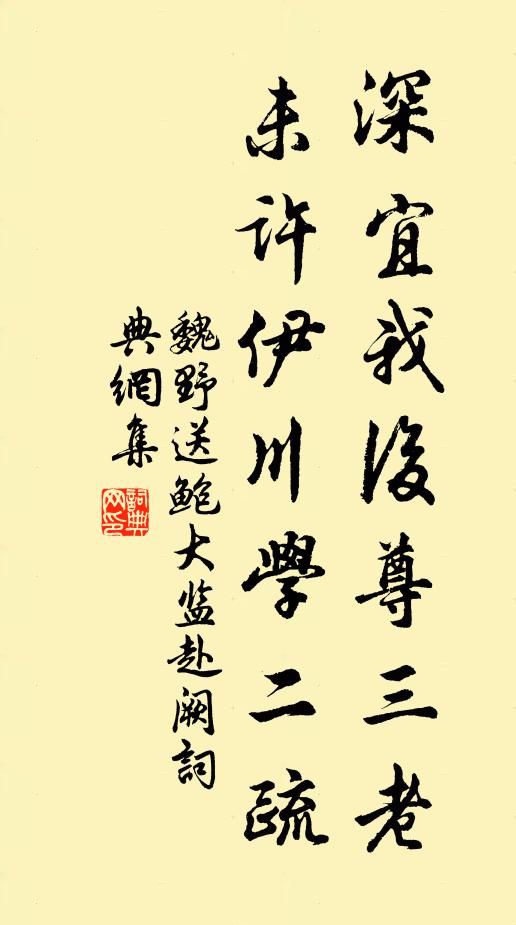 深宜我后尊三老
未許伊川學二疏
魏野送鮑大监赴阙詞
典網集
詞典网印